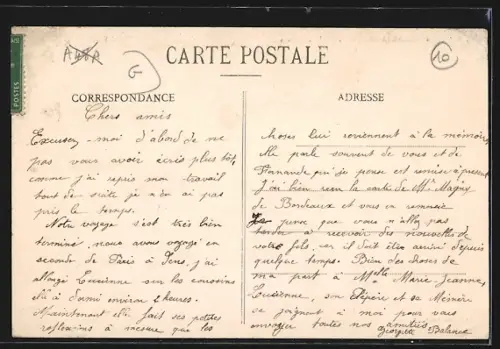 POSTES
CARTE POSTALE
10
G
CORRESPONDANCE
ADRESSE
Chers amis
Excusez-moi d'abord de ne
pas vous avoir écrit plus tôt,
comme j'ai repris mon travail
tout de suite je n'en ai pas
pris le temps.
Notre voyage s'est très bien
terminé, nous avons voyagé en
seconde de Paris à , j'ai
allongé Lucienne sur les coussins
elle a dormi environ 2 heures.
Maintenant elle fait ses petites
reflexions à mesure que les
choses lui reviennent à la mémoire,
elle parle souvent de vous et de
Fernande qui je pense est remise à présent
J'ai bien reçu la carte de Mr Magny
de Bordeaux et vous en remercie
Je pense que vous n'allez pas
tarder à recevoir des nouvelles de
votre fils, car il doit être arrivé depuis
quelque temps. Bien des choses de
ma part à Melle Marie Jeanne,
Lucienne, son Pépère et sa Mémère
se joignent à moi pour vous
envoyer toutes nos amitiés
Georgette